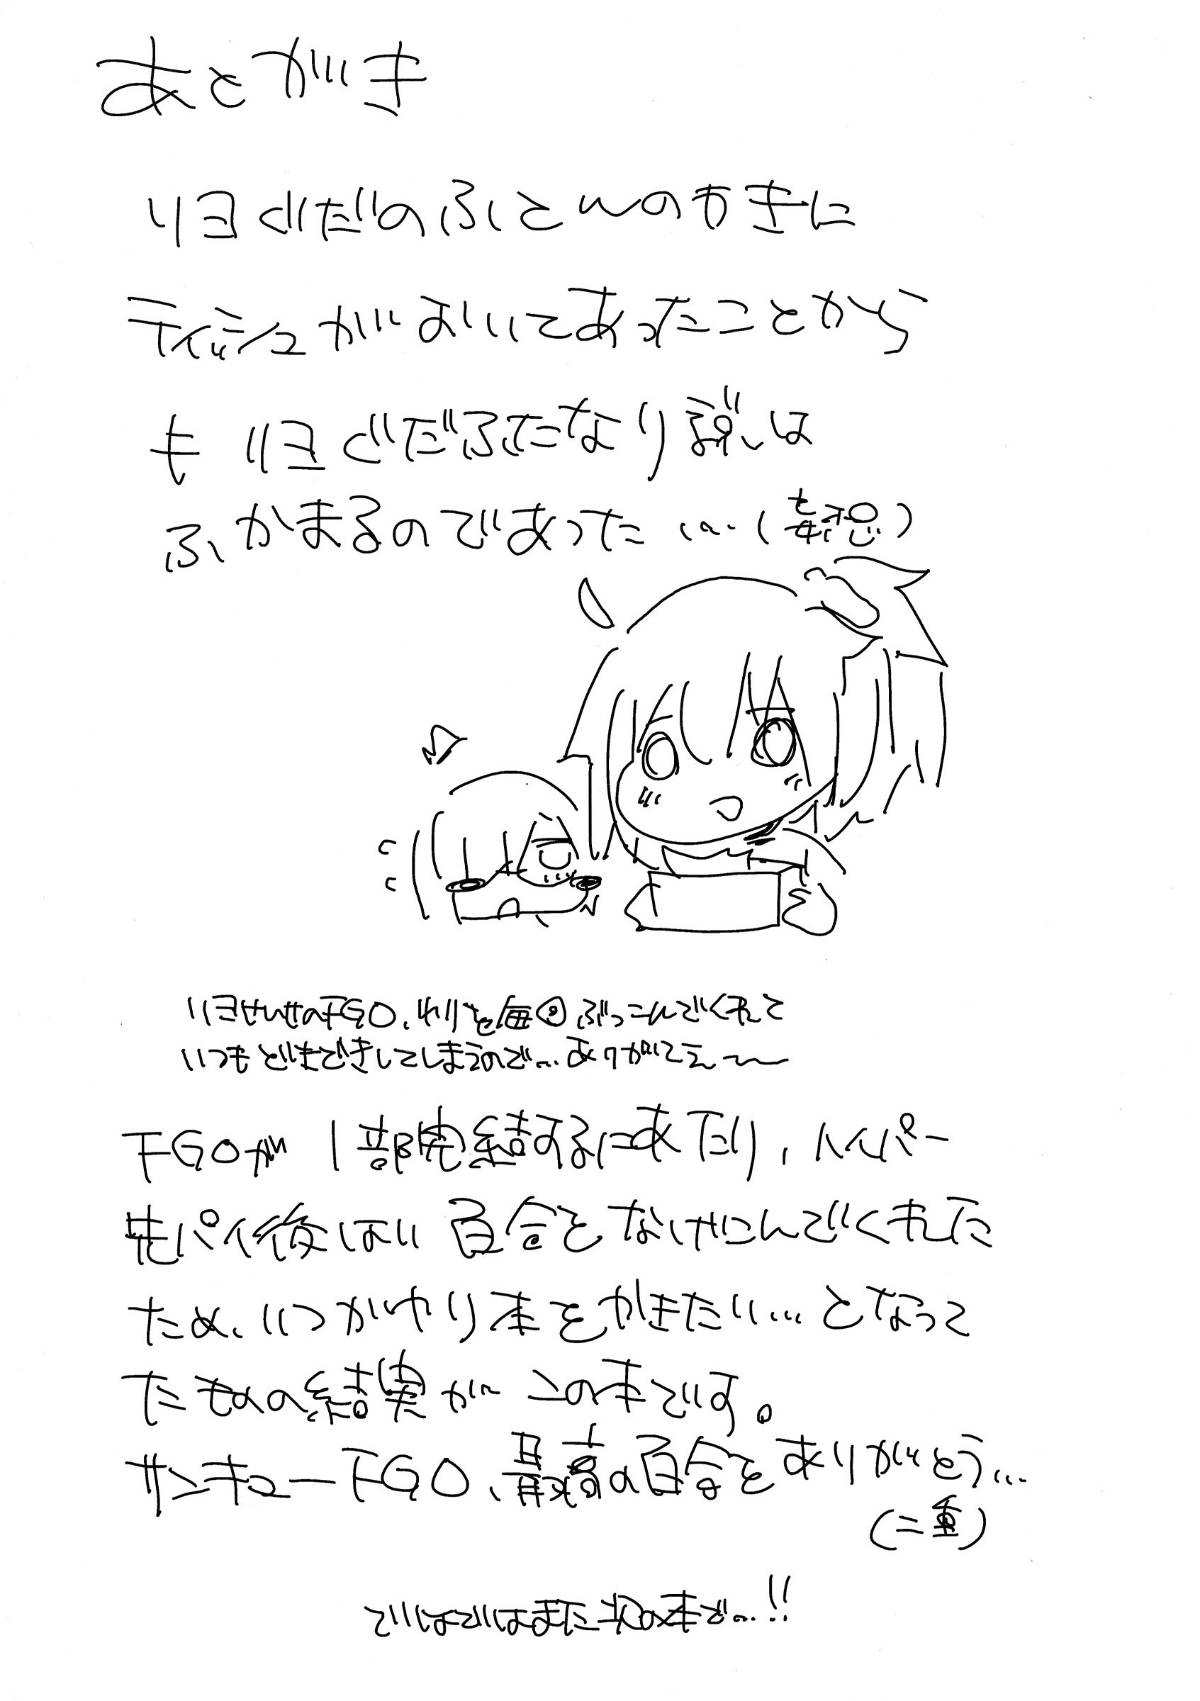 あとがき
リヨぐだのふとんのわきに
ティッシュがおいてあったことから
も リヨぐだふたなり説は
ふかまるのであった…(妄想)
リヨせんせのFGO、わりと毎回ぶっこんでくれて
いつもどぎまぎしてしまうので…ありがてえ〜
FGOが1部完結するにあたり、ハイパー
先パイ後はい百合をなげこんでくれた
ため、いつかやり本をかきたい…となって
たものの結実がこの本です。
サンキューFGO、最高の百合をありがとう…
(二重)
ではではまた次の本で…!!